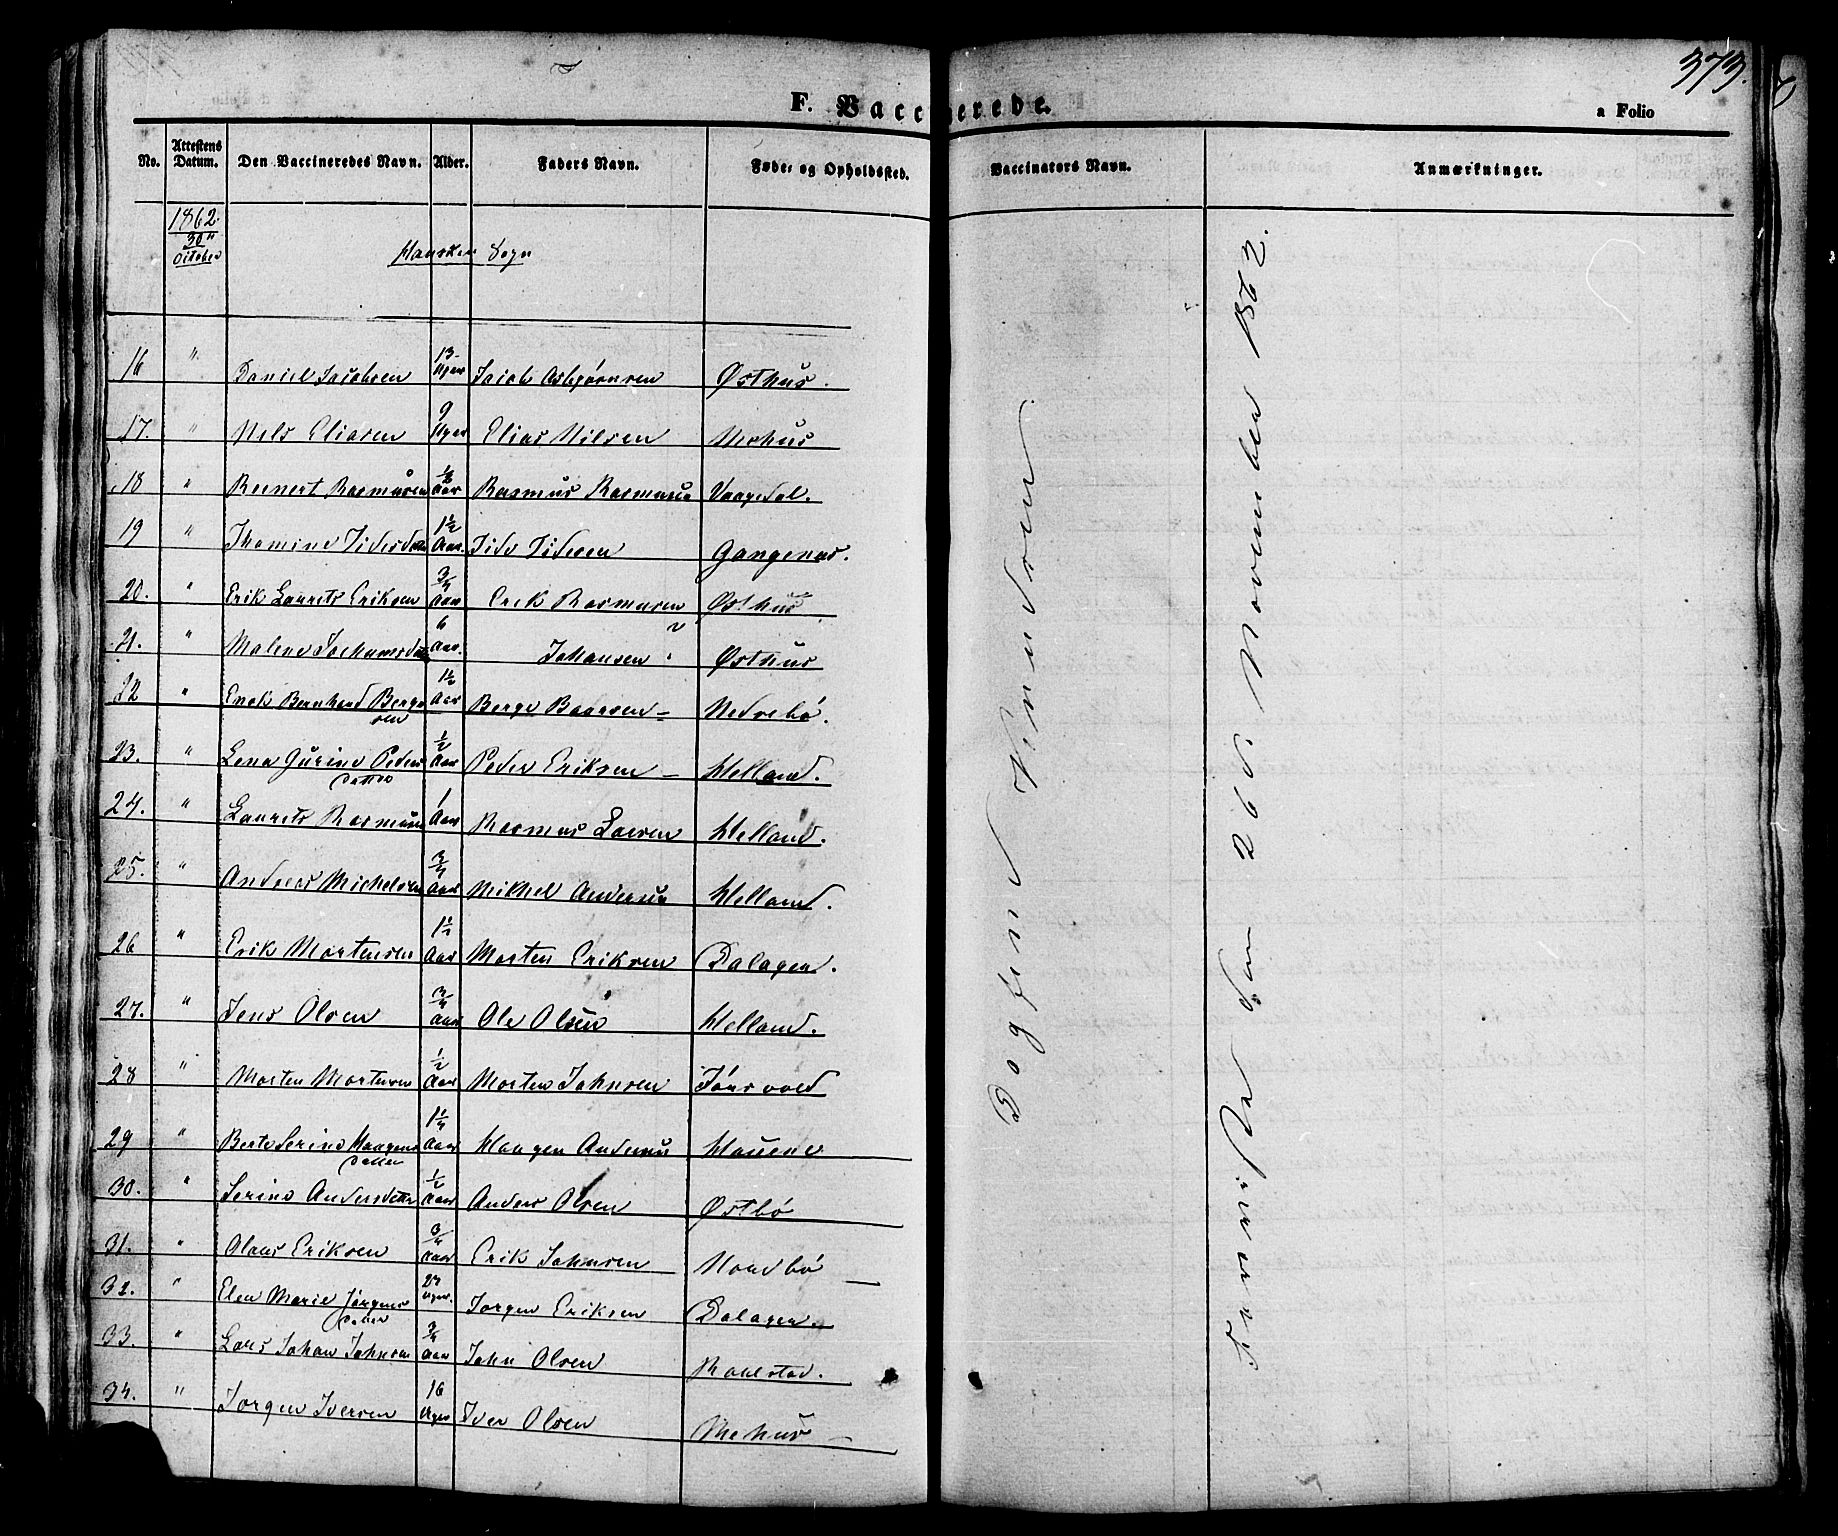 373.
F. Vaccinerede.
a Folio
No. Attestens Datum. Den Vaccineredes Navn. Alder. Faders Navn. Føde- og Opholdssted. Vaccinators Navn. Anmærkninger.
1862
30"
October
Hausken Sogn
16 " Daniel Jacobsen 13 Uger Jacob Asbjørnsen Østhus.
17. " Nels Eliasen 9 Uger Elias Nilsen Mehus
18 " Reinert Rasmusen 1/2 Aar Rasmus Rasmusen Vaagedal.
19 " Thomine Tidesdatter 1 1/2 Aar. Tide Tidesen Gangenæs.
20. " Erik Laurits Eriksen 3/4 Aar Erik Rasmusen Østhus
21. " Malene Jochumsdatter 6 Aar. Johansen Østhus
22 " Enok Bernhard Berge 1 1/2 Aar Berge Baarsen Nedrebø.
sen
23. " Lena Gurine Peders 1/2 Aar Peder Eriksen Helland.
datter
24. " Laurits Rasmusen 1 Aar Rasmus Larsen Helland.
25. " Andreas Michelsen 3/4 Aar Mikkel Andersen Helland.
26 " Erik Mortensen Aar Morten Eriksen Dalagen.
27. " Jens Olsen 3/4 Aar Ole Olsen Helland.
28 " Morten Mortensen 1/2 Aar Morten Johnsen
29 " Berte Serine Haagens 1 1/4 Aar Haagen Andersen
datter
30. " Serine Andersdatter 1/2 Aar Anders Olsen Østbø
31. " Olaus Eriksen 3/4 Aar Erik Johnsen Nordbø
32. " Elen Marie Jørgens Uger. Jørgen Eriksen Dalagen.
datter
33. " Lars Johan Johnsen 3/4 Aar John Olsen
34. " Jørgen Iversen 16 Uger Iver Olsen Mehus
Dagfind Vemundsen
den 26de November 1862.